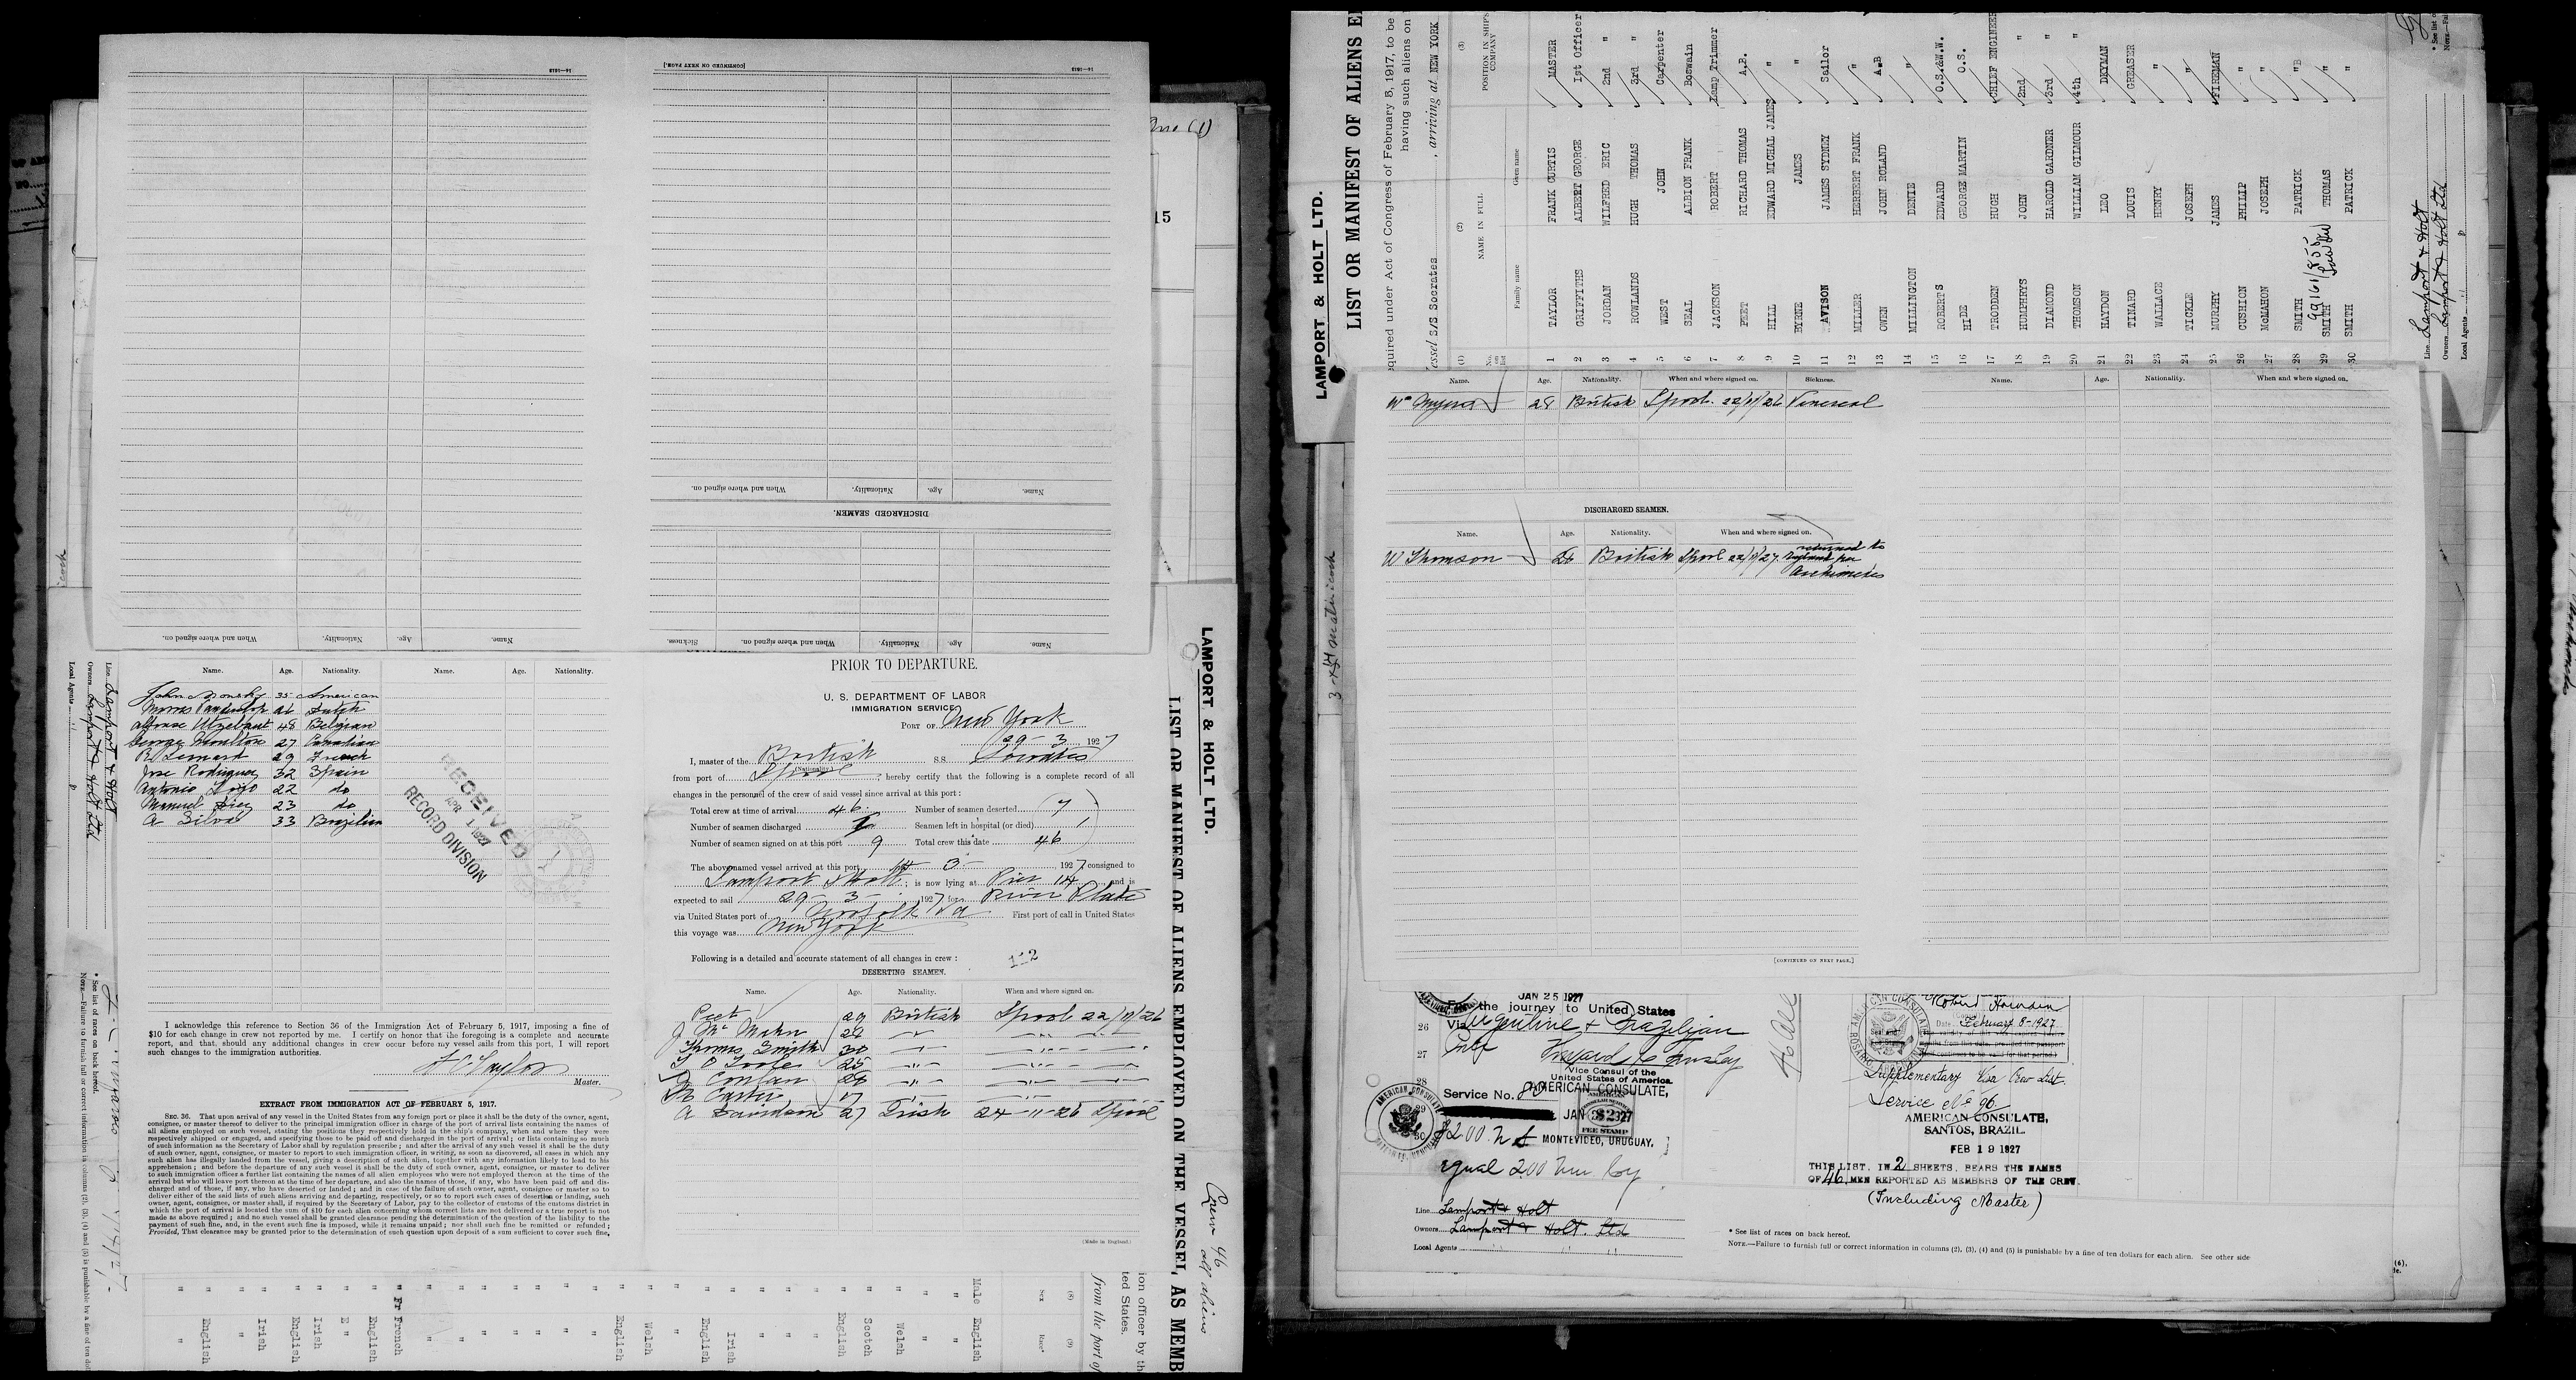 14—1518
14—1518
[CONTINUED ON NEXT PAGE.]
Name. Age. Nationality. When and where signed on.
DISCHARGED SEAMEN.
Name. Age. Nationality. When and where signed on.
Name. Age. Nationality. When and where signed on. Sickness.
15
Line Lamport & Holt
Owners Lamport & Holt Ltd
Local Agents " "
* See list of races on back hereof.
Name. Age. Nationality. Name. Age. Nationality.
John 35 American
26 Dutch
48 Belgian
George Moulton 27 Canadian
R Lennard 29 French
Jose Rodriguez 32 Spain
Antonio 22 do
Manuel Diez 23 do
A Silva 33 Brazilian
RECEIVED
APR 1 1927
RECORD DIVISION
I acknowledge this reference to Section 36 of the Immigration Act of February 5, 1917, imposing a fine of
$10 for each change in crew not reported by me. I certify on honor that the foregoing is a complete and accurate
report, and that, should any additional changes in crew occur before my vessel sails from this port, I will report
such changes to the immigration authorities.
F C Taylor
Master.
EXTRACT FROM IMMIGRATION ACT OF FEBRUARY 5, 1917.
SEC. 36. That upon arrival of any vessel in the United States from any foreign port or place it shall be the duty of the owner, agent,
consignee, or master thereof to deliver to the principal immigration officer in charge of the port of arrival lists containing the names of
all aliens employed on such vessel, stating the positions they respectively hold in the ship's company, when and where they were
respectively shipped or engaged, and specifying those to be paid off and discharged in the port of arrival; or lists containing so much
of such information as the Secretary of Labor shall by regulation prescribe; and after the arrival of any such vessel it shall be the duty
of such owner, agent, consignee, or master to report to such immigration officer, in writing, as soon as discovered, all cases in which any
such alien has illegally landed from the vessel, giving a description of such alien, together with any information likely to lead to his
apprehension; and before the departure of any such vessel it shall be the duty of such owner, agent, consignee, or master to deliver
to such immigration officer a further list containing the names of all alien employees who were not employed thereon at the time of the
arrival but who will leave port thereon at the time of her departure, and also the names of those, if any, who have been paid off and dis-
charged and of those, if any, who have deserted or landed; and in case of the failure of such owner, agent, consignee or master so to
deliver either of the said lists of such aliens arriving and departing, respectively, or so to report such cases of desertion or landing, such
owner, agent, consignee, or master shall, if required by the Secretary of Labor, pay to the collector of customs of the customs district in
which the port of arrival is located the sum of $10 for each alien concerning whom correct lists are not delivered or a true report is not
made as above required; and no such vessel shall be granted clearance pending the determination of the question of the liability to the
payment of such fine, and, in the event such fine is imposed, while it remains unpaid; nor shall such fine be remitted or refunded;
Provided, That clearance may be granted prior to the determination of such question upon deposit of a sum sufficient to cover such fine,
PRIOR TO DEPARTURE.
U. S. DEPARTMENT OF LABOR
IMMIGRATION SERVICE
PORT OF New York
29-3 1927
I, master of the British SS. Socrates
(Nationality.)
from port of Lpool ; hereby certify that the following is a complete record of all
changes in the personnel of the crew of said vessel since arrival at this port:
Total crew at time of arrival 46 Number of seamen deserted 7
Number of seamen discharged 1 Seamen left in hospital (or died) 1
Number of seamen signed on at this port 9 Total crew this date 46
The abovenamed vessel arrived at this port 3 1927 consigned to
Lamport & Holt, is now lying at Pier 14 and is
expected to sail 29 3 1927 for River Plate
via United States port of Norfolk Va First port of call in United States
this voyage was New York
Following is a detailed and accurate statement of all changes in crew: 112
DESERTING SEAMEN.
Name. Age. Nationality. When and where signed on.
Peet 29 British Lpool 22/11/26
J McMahn
Thomas Smith 30
T O Toole 25
Conlan
Carter
A Davidson 27 Irish 24-11-26 Lpool
(Made in England.)
LAMPORT & HOLT LTD.
LIST OR MANIFEST OF ALIENS EMPLOYED ON THE VESSEL AS MEMB
Crew 46
all aliens
ion officer by th
ted States.
from the port of
(8) (9)
Sex Race*
Male English
" "
" Welsh
" Scotch
" English
Irish
English
Welsh
English
French
English
Irish
English
Irish
English
LAMPORT & HOLT LTD.
LIST OR MANIFEST OF ALIENS E
equired under Act of Congress of February 5, 1917, to be
having such aliens on
essel S/S Socrates , arriving at NEW YORK
(1) (2) (3)
No. on list NAME IN FULL POSITION IN SHIP'S COMPANY
Family name Given name
1 TAYLOR FRANK CURTIS MASTER
2 GRIFFITHS ALBERT GEORGE 1st Officer
3 JORDAN WILFRED ERIC 2nd "
4 ROWLANDS HUGH THOMAS 3rd "
5 WEST JOHN Carpenter
6 SEAL ALBION FRANK Boswain
7 JACKSON ROBERT Lamp Trimmer
8 PEET RICHARD THOMAS A.B.
9 HILL EDWARD MICHAL JAMES "
10 BYRNE JAMES "
11 AVISON JAMES SYDNEY Sailor
12 MILLER HERBERT FRANK "
13 OWEN JOHN ROLAND A.B
14 MILLINGTON DENIE "
15 ROBERTS EDWARD O.S.&W.W.
16 HIDE GEORGE MARTIN O.S.
17 TRODDEN HUGH CHIEF ENGINEER
18 HUMPHRYS JOHN 2nd "
19 DIAMOND HAROLD GARDNER 3rd "
20 THOMSON WILLIAM GILMOUR 4th "
21 HAYDON LEO DKYMAN
22 TINARD LOUIS GREASER
23 WALLACE HENRY "
24 TICKLE JOSEPH "
25 MURPHY JAMES FIREMAN
26 CUSHION PHILIP "
27 McMAHON JOSEPH "
28 SMITH PATRICK "
99161/855
29 SMITH THOMAS "
30 SMITH PATRICK "
Line Lamport & Holt
Owners Lamport & Holt Ltd
Local Agents " "
Name. Age. Nationality. When and where signed on. Sickness.
Wm Myers 28 British Lpool. 22/11/26 Venereal
DISCHARGED SEAMEN.
Name. Age. Nationality. When and where signed on.
W Thomson 26 British Lpool 22/11/27 returned to
England per
Archimedes
[CONTINUED ON NEXT PAGE.]
Name. Age. Nationality. When and where signed on.
JAN 25 1927
For the journey to United States
26 Via Argentine & Brazilian
27 Ports
Vice Consul of the
United States of America.
28
AMERICAN CONSULATE,
Service No. 20
29 JAN 1927
30 $200 MONTEVIDEO, URUGUAY.
AMERICAN CONSULAR SERVICE $2 FEE STAMP
equal 2.00 by
Line Lamport & Holt
Owners Lamport & Holt. Ltd
Local Agents " "
AMERICAN CONSULATE ROSARIO
Date February 8-1927
Supplementary Visa Crew List.
Service No 96
AMERICAN CONSULATE,
SANTOS, BRAZIL.
FEB 19 1927
THIS LIST, IN 2 SHEETS, BEARS THE NAMES
OF 46 MEN REPORTED AS MEMBERS OF THE CREW.
(Including Master)
* See list of races on back hereof.
NOTE.—Failure to furnish full or correct information in columns (2), (3), (4) and (5) is punishable by a fine of ten dollars for each alien. See other side